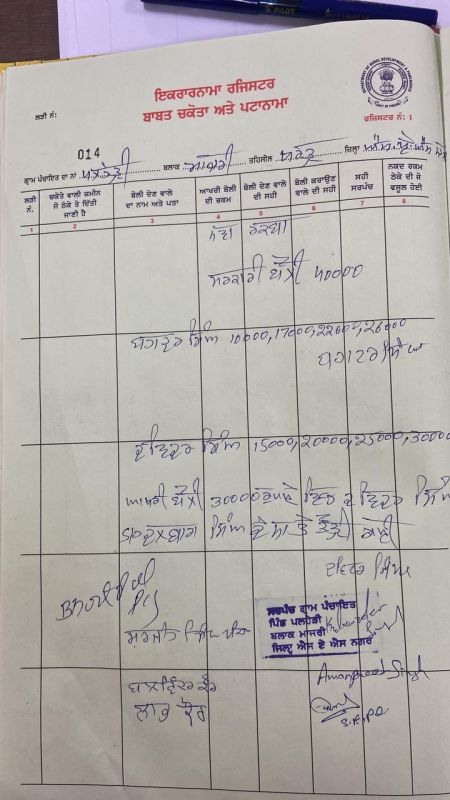 PILOT
DEPARTMENT OF RURAL DEVELOPMENT & PANCHAYATS
ਇਕਰਾਰਨਾਮਾ ਰਜਿਸਟਰ
ਬਾਬਤ ਚਕੋਤਾ ਅਤੇ ਪਟਾਨਾਮਾ
ਲੜੀ ਨੰ:
ਰਜਿਸਟਰ ਨੰ: 1
014
ਗ੍ਰਾਮ ਪੰਚਾਇਤ ਦਾ ਨਾਂ ਪਲਹੇੜੀ ਬਲਾਕ ਮਾਜਰੀ ਤਹਿਸੀਲ ਖਰੜ ਜ਼ਿਲ੍ਹਾ ਐਸ.ਏ.ਐਸ ਨਗਰ
ਲੜੀ ਨੰ. ਚਕੋਤੇ ਵਾਲੀ ਜ਼ਮੀਨ ਜੋ ਠੇਕੇ ਤੇ ਦਿੱਤੀ ਜਾਣੀ ਹੈ ਬੋਲੀ ਦੇਣ ਵਾਲੇ ਦਾ ਨਾਮ ਅਤੇ ਪਤਾ ਆਖਰੀ ਬੋਲੀ ਦੀ ਰਕਮ ਬੋਲੀ ਦੇਣ ਵਾਲੇ ਦੀ ਸਹੀ ਬੋਲੀ ਕਰਾਉਣ ਵਾਲੇ ਦੀ ਸਹੀ ਸਹੀ ਸਰਪੰਚ ਨਕਦ ਰਕਮ ਠੇਕੇ ਦੀ ਜੋ ਵਸੂਲ ਹੋਈ
1 2 3 4 5 6 7 8
ਰਕਬਾ
ਸਰਕਾਰੀ ਬੋਲੀ 40000
ਜਗਤਾਰ ਸਿੰਘ 10000, 17000, 22000, 26000
ਦਵਿੰਦਰ ਸਿੰਘ 15000, 20000, 25000, 30000
ਆਖਰੀ ਬੋਲੀ 30000 ਰੁਪਏ ਵਿੱਚ ਦਵਿੰਦਰ ਸਿੰਘ
S/o ਸਿੰਘ ਦੇ ਨਾਂ ਤੇ ਤੋੜੀ ਗਈ
ਦਵਿੰਦਰ ਸਿੰਘ
ਸਰਪੰਚ ਗ੍ਰਾਮ ਪੰਚਾਇਤ
ਪਿੰਡ ਪਲਹੇੜੀ
ਬਲਾਕ ਮਾਜਰੀ
ਜ਼ਿਲ੍ਹਾ ਐਸ ਏ ਐਸ ਨਗਰ
Amanpreet Singh